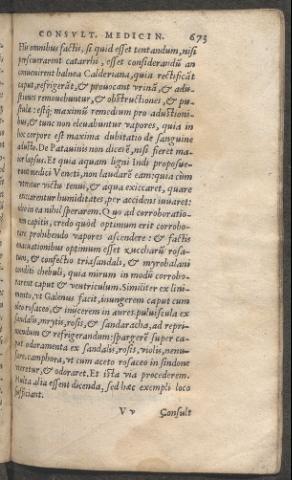 CONSVLT. MEDICIN. 673
His omnibus factis, si quid esset tentandum, nisi
perseuerarent catarrhi, esset considerandũ an
conuenirent balnea Calderiana, quia rectificãt
caput, refrigerãt, & prouocant vrinã, & adu-
stiones remouebuntur, & obstructiones, & pu-
stulæ: estq́; maximũ remedium pro adustioni-
bus, & tunc non eleuabuntur vapores, quia in
hoc corpore est maxima dubitatio de sanguine
adusto. De Patauinis non dicerẽ, nisi fieret ma-
ior lapsus. Et quia aquam ligni Indi proposue-
runt medici Veneti, non laudarẽ eam: quia cùm
vteretur victu tenui, & aqua exiccaret, quare
exiccarentur humiditates, per accidens iuuaret:
ideo in ea nihil sperarem. Quo ad corroboratio-
nem capitis, credo quòd optimum erit corrobo-
rare prohibendo vapores ascendere: & factis
euacuationibus optimum esset zuccharũ rosa-
tum, & confectio triasandali, & myrobalani
conditi chebuli, quia mirum in modũ corrobo-
rarent caput & ventriculum. Similiter ex lini-
mento, vt Galenus facit, inungerem caput cum
oleo rosaceo, & inijcerem in aures puluiscula ex
sandalis, myrtis, rosis, & sandaracha, ad repri-
mendum & refrigerandum: spargerẽ super ca-
put odoramenta ex sandalis, rosis, violis, nenu-
phare, camphora, vt cum aceto rosaceo in sindone
vteretur, & odoraret. Et ista via procederem.
Multa alia essent dicenda, sed hæc exempli loco
sufficiant.
V v Consult